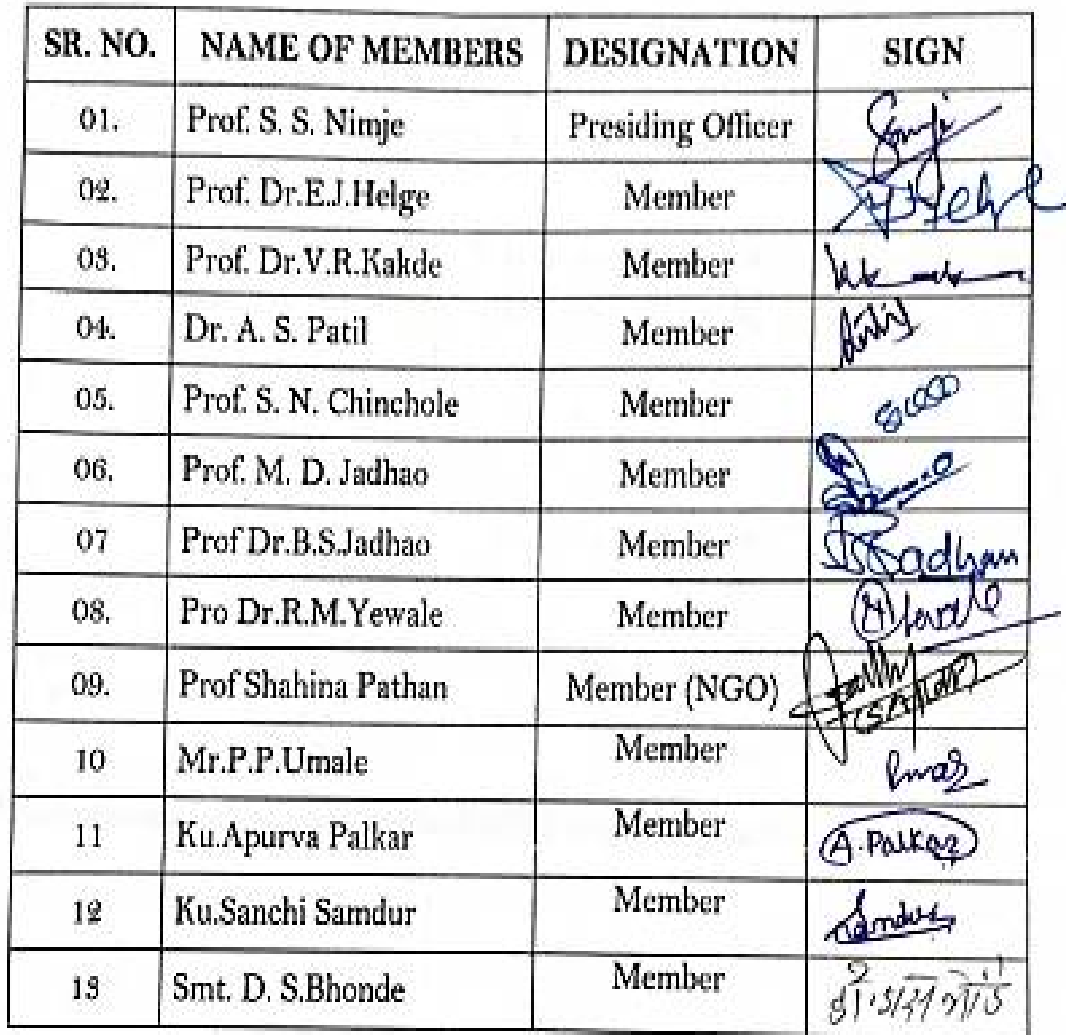 SR. NO. NAME OF MEMBERS DESIGNATION SIGN
01. Prof. S. S. Nimje Presiding Officer
02. Prof. Dr.E.J.Helge Member
03. Prof. Dr.V.R.Kakde Member
04. Dr. A. S. Patil Member
05. Prof. S. N. Chinchole Member
06. Prof. M. D. Jadhao Member
07 Prof Dr.B.S.Jadhao Member
08. Pro Dr.R.M.Yewale Member
09. Prof Shahina Pathan Member (NGO)
10 Mr.P.P.Umale Member
11 Ku.Apurva Palkar Member A.Palkar
12 Ku.Sanchi Samdur Member
13 Smt. D. S.Bhonde Member